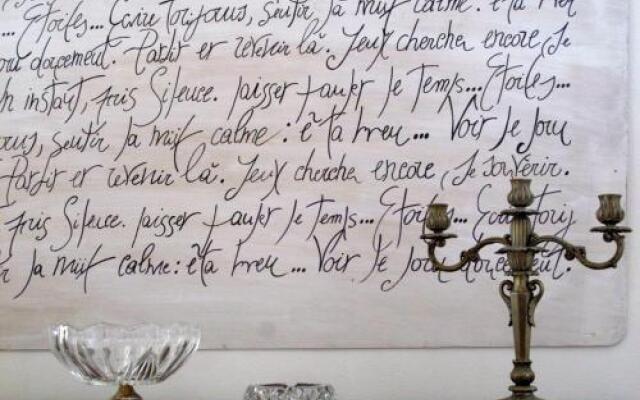 ... Étoiles... Écrire toujours, sentir la nuit calme : et ta
doucement. Partir et revenir là. Yeux chercher encore, se
instant, puis Silence. laisser passer le Temps... Étoiles...
sentir la nuit calme : et ta ... Voir le jou
Partir et revenir là. Yeux chercher encore, se souvenir.
puis Silence. laisser passer le Temps... Étoiles...
la nuit calme : et ta ... Voir le jour doucement.